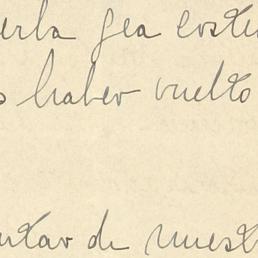 erba gea coste
s haber vuelto
ntar de nuest